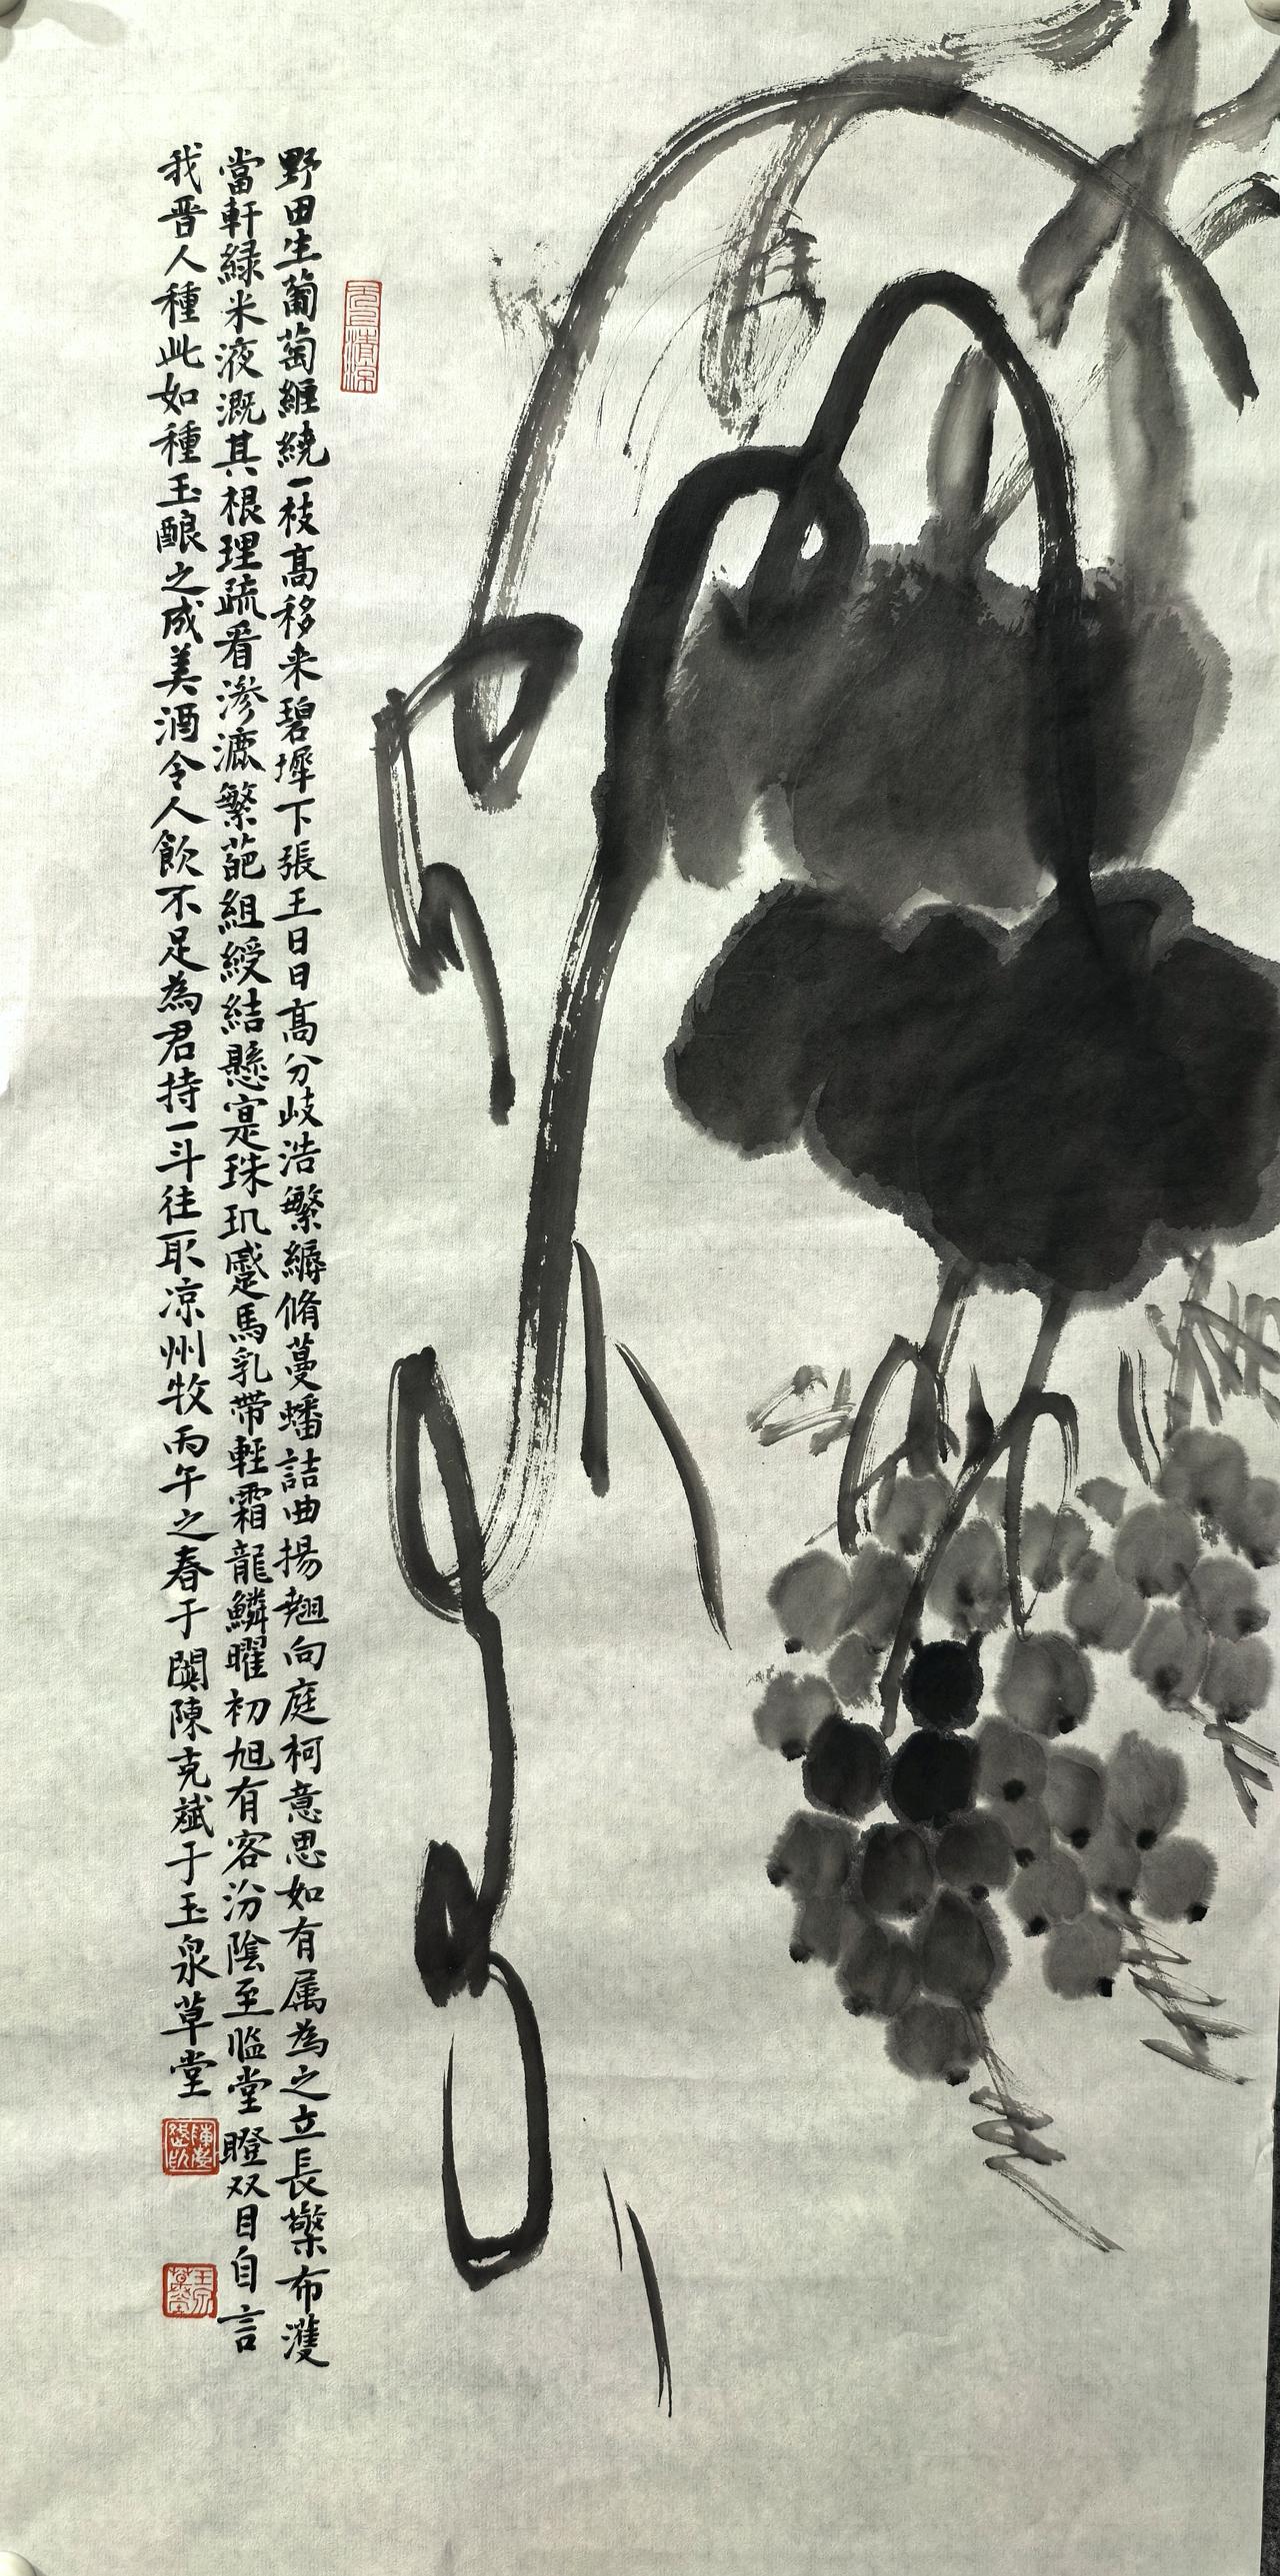 野田生葡萄纏繞一枝高移来碧墀下張王日日高分岐浩繁縟脩蔓蟠詰曲揚翹向庭柯意思如有属為之立長檠布濩
當軒緑米液溉其根理疏看滲漉繁葩組綬結懸寔珠玑蹙馬乳帶輕霜龍鱗曜初旭有客汾陰至臨堂瞪双目自言
我晋人種此如種玉釀之成美酒令人飲不足為君持一斗往取凉州牧丙午之春于闐陳克斌于玉泉草堂